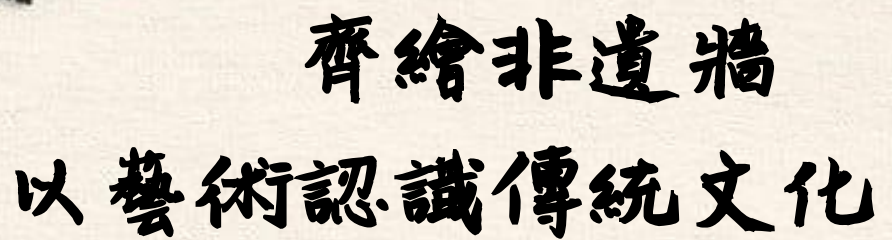 齊繪非遺牆
以藝術認識傳統文化